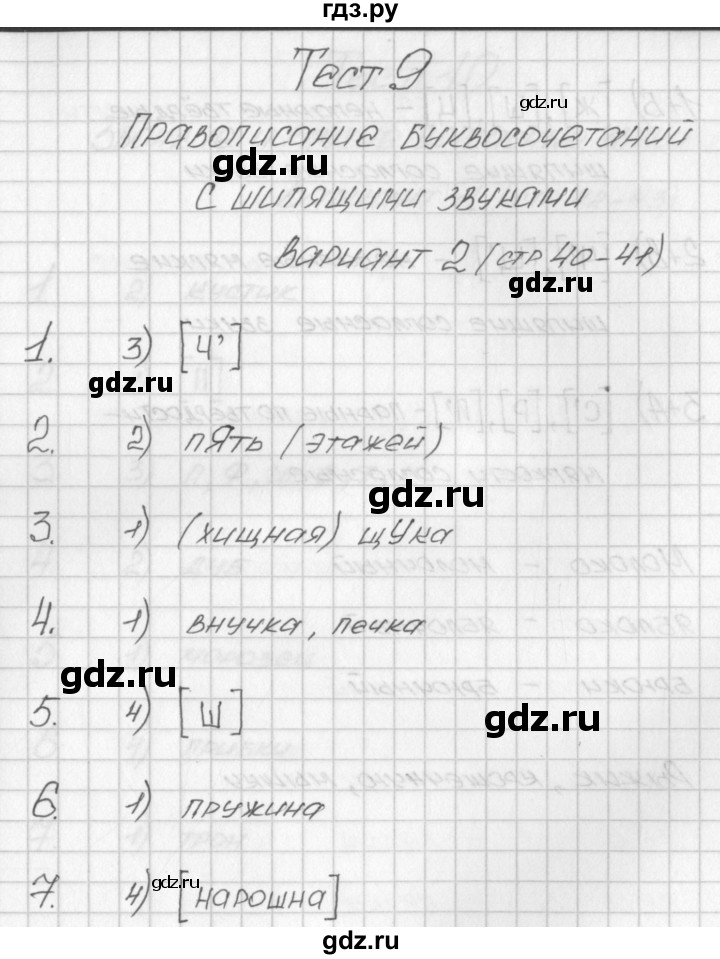 гдз.ру
Тест 9
gdz.ru
Правописание буквосочетаний
gdz.ru
с шипящими звуками
Вариант 2 (стр 40-41)
gdz.ru
1. 3) [ч']
gdz.ru
2. 2) пЯть (этажей)
gdz.ru
3. 1) (хищная) щУка
4. 1) внучка, печка
gdz.ru
5. 4) [ш]
gdz.ru
6. 1) пружина
gdz.ru
7. 4) [нарошна]
gdz.ru